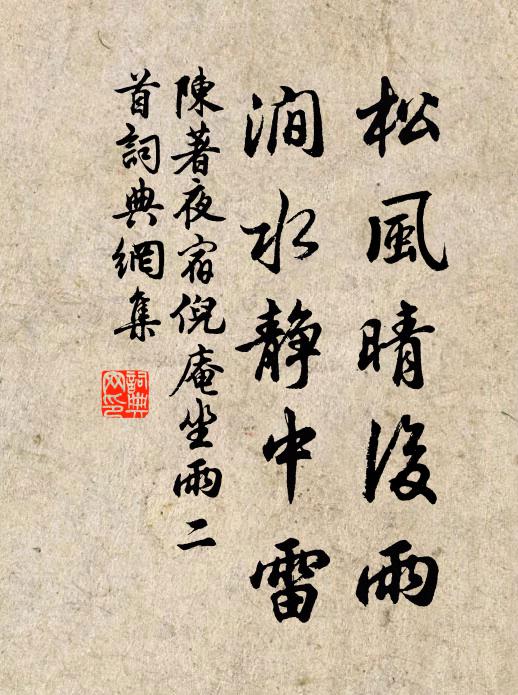 松風晴後雨
澗水静中雷
陳著夜宿倪庵坐雨二
首詞典網集
詞典
网印